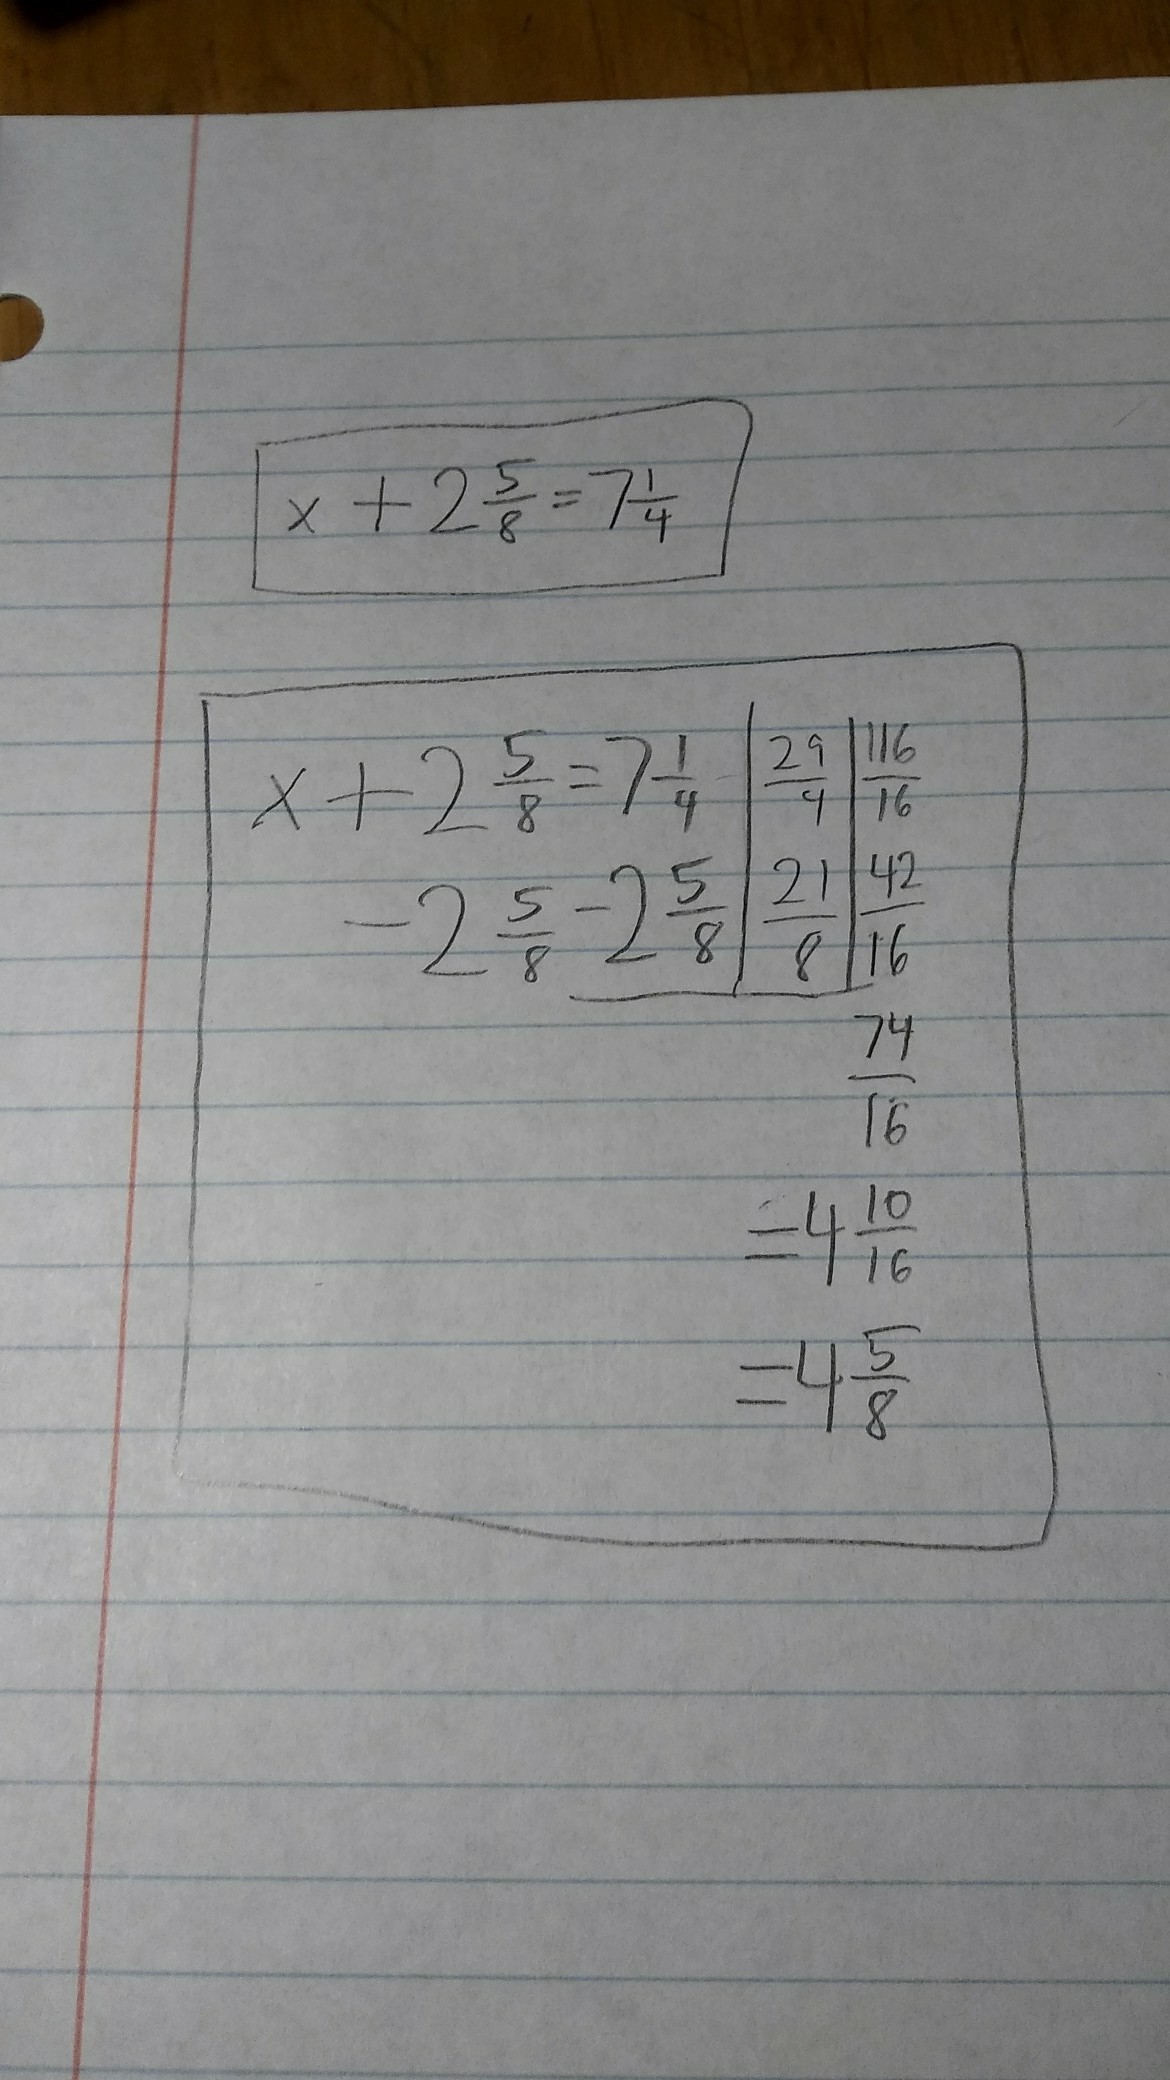 x + 2 5/8 = 7 1/4
x + 2 5/8 = 7 1/4 | 29/4 | 116/16
- 2 5/8 - 2 5/8 | 21/8 | 42/16
74/16
= 4 10/16
= 4 5/8